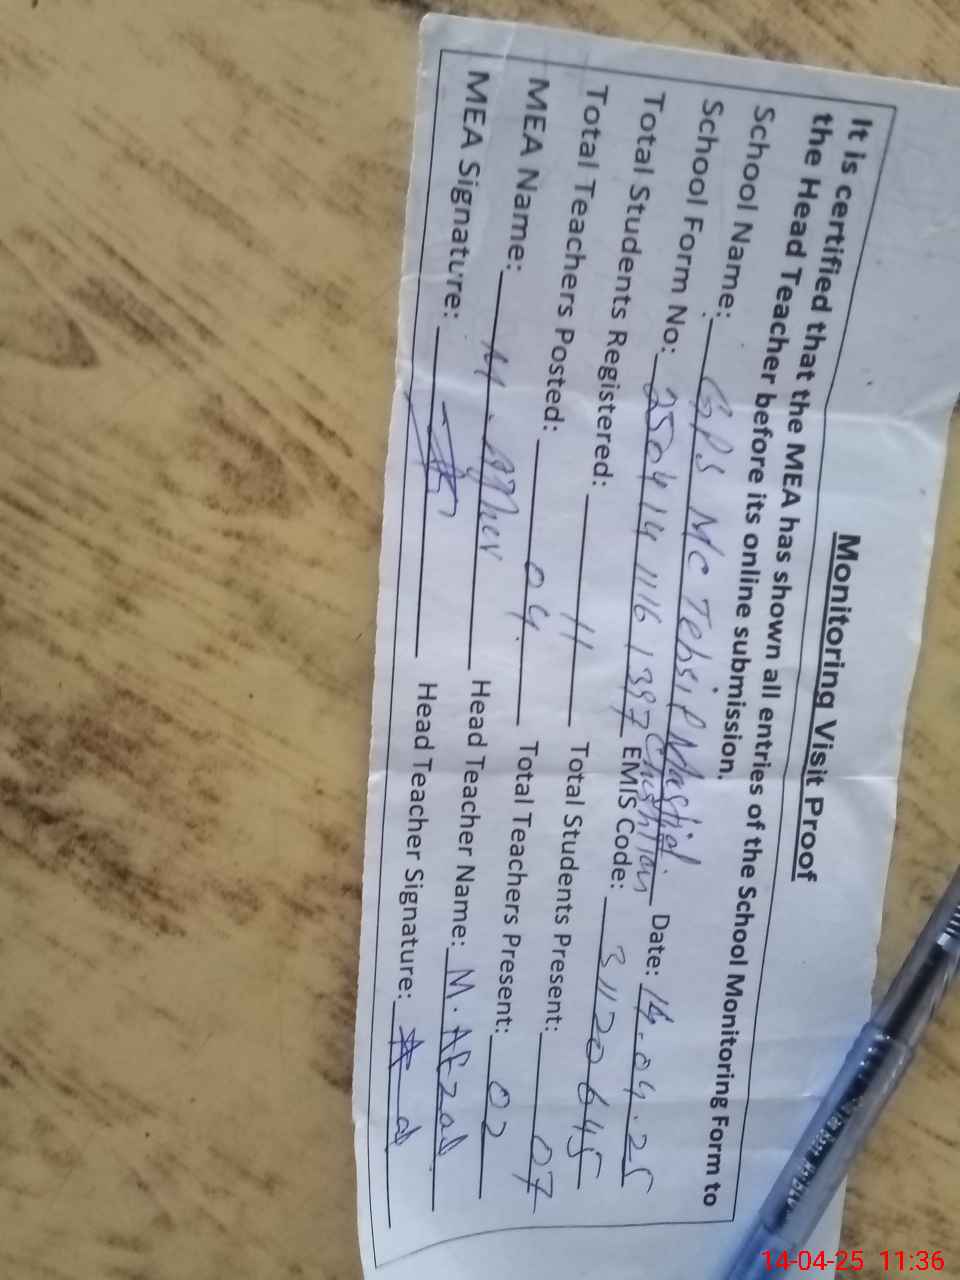 Monitoring Visit Proof
It is certified that the MEA has shown all entries of the School Monitoring Form to
the Head Teacher before its online submission.
School Name: GPS MC Tehsil Masjid Chishtian Date: 14.04.25
School Form No: 25041411161397 EMIS Code: 31120645
Total Students Registered: 11 Total Students Present: 07
Total Teachers Posted: 04 Total Teachers Present: 02
MEA Name: M. Head Teacher Name: M. Afzal
MEA Signature: Head Teacher Signature:
14-04-25 11:36